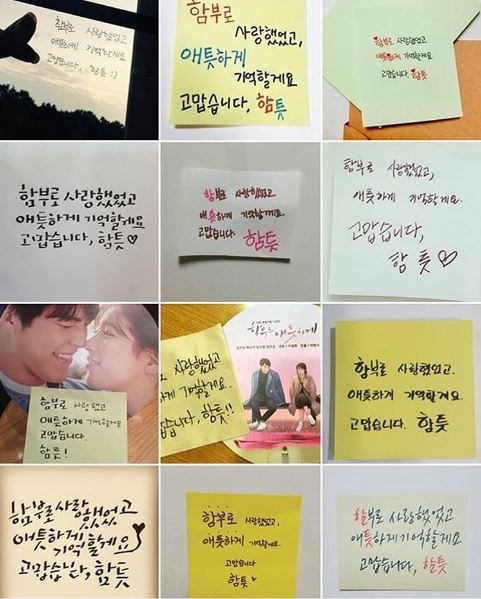 함부로 사랑했었고
애틋하게 기억할게요
고맙습니다, 함틋 :)
함부로
사랑했었고,
애틋하게
기억할게요
고맙습니다, 함틋
함부로 사랑했었고,
애틋하게 기억할게요
고맙습니다. 함틋
함부로 사랑했었고
애틋하게 기억할게요
고맙습니다, 함틋♡
함부로 사랑했었고,
애틋하게 기억할게요.
고맙습니다. 함틋
함부로 사랑했었고,
애틋하게 기억할게요.
고맙습니다,
함틋♡
함부로 사랑했었고
애틋하게 기억할게요
고맙습니다.
함틋!
사랑했었고
하게 기억할게요.
습니다, 함틋!!
함부로 애틋하게
함부로 사랑했었고.
애틋하게 기억할게요.
고맙습니다. 함틋
함부로 사랑했었고
애틋하게 기억할게요
고맙습니다, 함틋
함부로 사랑했었고,
애틋하게 기억할게요.
고맙습니다
함틋♥
함부로 사랑했었고
애틋하게 기억할게요
고맙습니다, 함틋